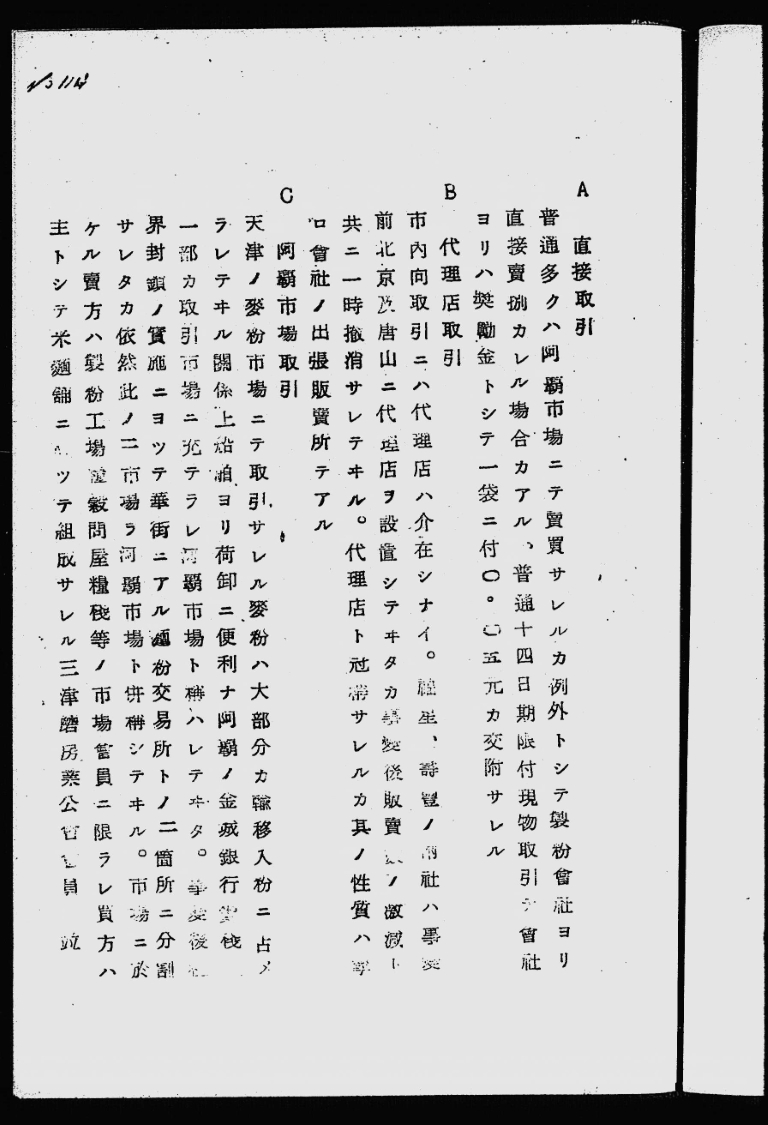 No 114
A 直接取引
普通多クハ阿覇市場ニテ賣買サレルカ例外トシテ製粉會社ヨリ
直接賣捌カレル場合カアル、普通十四日期限付現物取引テ會社
ヨリハ奬勵金トシテ一袋ニ付〇。〇五元カ交附サレル
B 代理店取引
市內向取引ニハ代理店ハ介在シナイ。 、壽豐ノ兩社ハ事變
前北京及唐山ニ代理店ヲ設置シテヰタカ事變後販賣 ノ激減ト
共ニ一時撤消サレテヰル。代理店ト冠稱サレルカ其ノ性質ハ寧
ロ會社ノ出張販賣所テアル
C 阿覇市場取引
天津ノ麥粉市場ニテ取引サレル麥粉ハ大部分カ輸移入粉ニ占メ
ラレテヰル關係上船舶ヨリ荷卸ニ便利ナ阿覇ノ金城銀行 棧
一部カ取引市場ニ充テラレ河覇市場ト稱ハレテヰタ。事變後
界封鎖ノ實施ニヨツテ華街ニアル 粉交易所トノ二箇所ニ分割
サレタカ依然此ノ二市場ラ河覇市場ト併稱シテヰル。市場ニ於
ケル賣方ハ製粉工場 穀問屋糧棧等ノ市場會員ニ限ラレ買方ハ
主トシテ米麵舖ニヨツテ組成サレル三津磨房業公會會員 竝